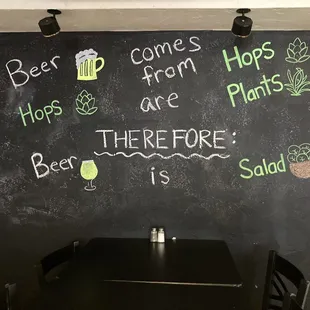 Beer comes from Hops
Hops are Plants
THEREFORE:
Beer is Salad